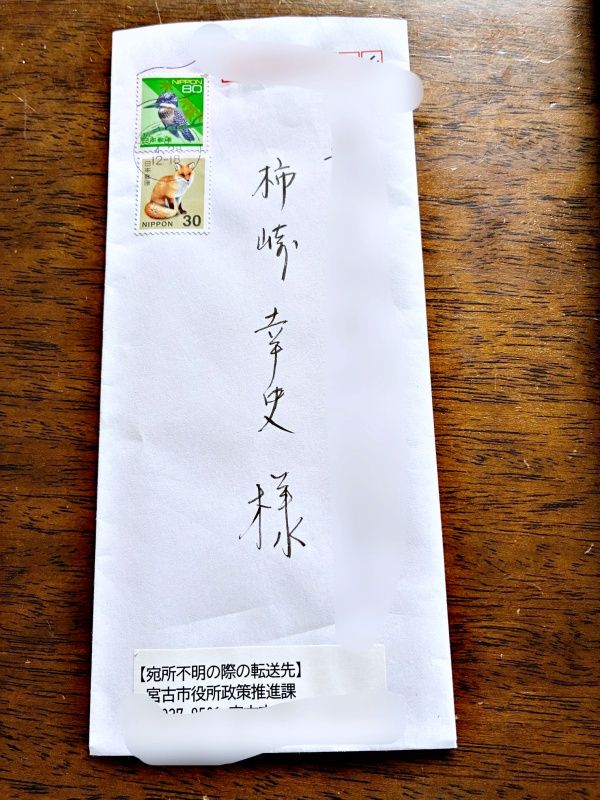 NIPPON
80
日本郵便
12-18
日本郵便
NIPPON 30
柿崎幸史様
【宛所不明の際の転送先】
宮古市役所政策推進課